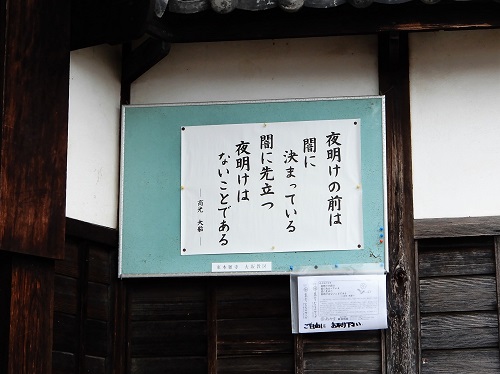 夜明けの前は
闇に
決まっている
闇に先立つ
夜明けは
ないことである
ご自由に お取り下さい